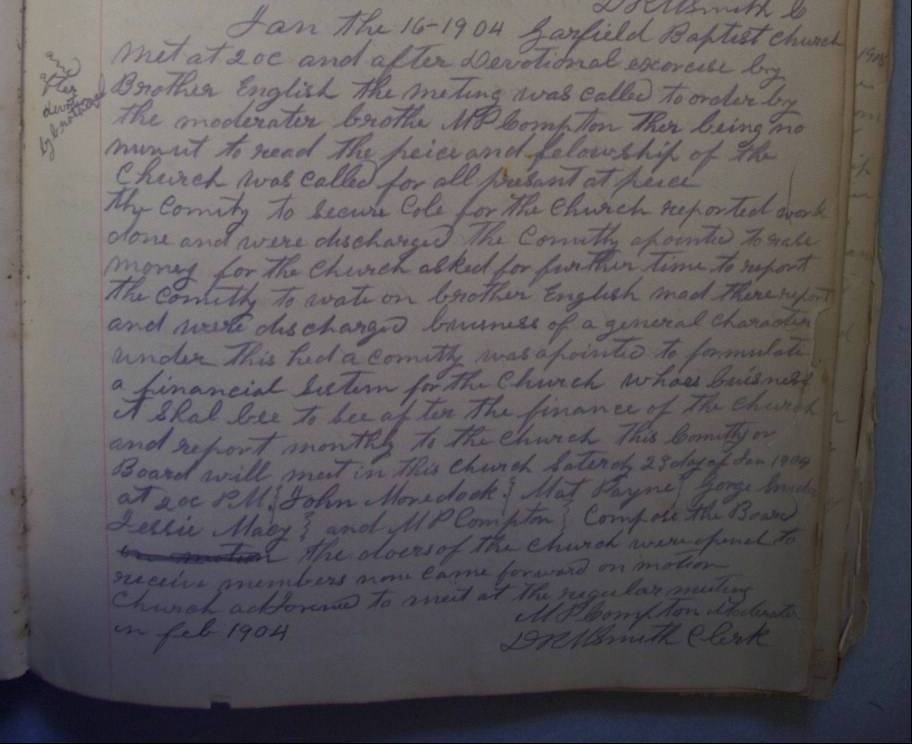 Smith C
Jan the 16-1904 Garfield Baptist Church
met at 2oc and after Devotional exorcise by
Brother English the meting was called to order by
the moderater brothe M P Compton Ther being no
minut to read the peice and felowship of the
Church was called for all presant at peice
the Comity to secure Cole for the Church reported work
done and were discharged The Comitty apointed to rase
money for the church asked for further time to report
the Comitty to wate on brother English mad there report
and were discharged buisness of a general character
under this hed a comitty was apointed to formulate
a financial sistem for the Church whoes buisness
it Shal bee to see after the finance of the church
and report monthly to the church this Comitty or
Board will meet in this church Saterdy 23 day of Jan 1904
at 2oc P.M. John Monedock Mat Payne Gorge
Jessie Macy and M P Compton Compose the Board
on motion the doers of the church were opend to
receive members none came forward on motion
Church adJorned to meet at the regular meeting
in feb 1904
M P Compton Moderater
Smith Clerk
after
devot
by brother
1904